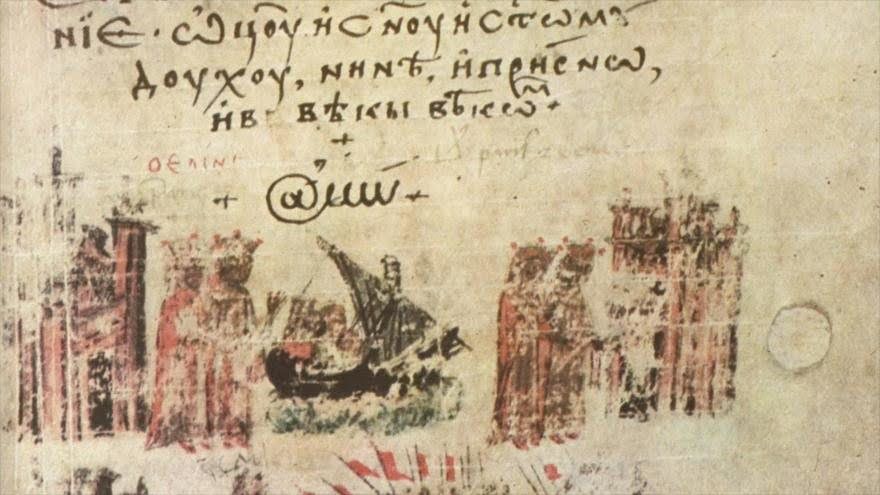 нїе · ѡц҃оу и сн҃оу и ст҃ѡмꙋ
доухоу, нинѣ, и приснѡ,
ив вѣкы вѣкѡⷨ +
+
+ @мин +